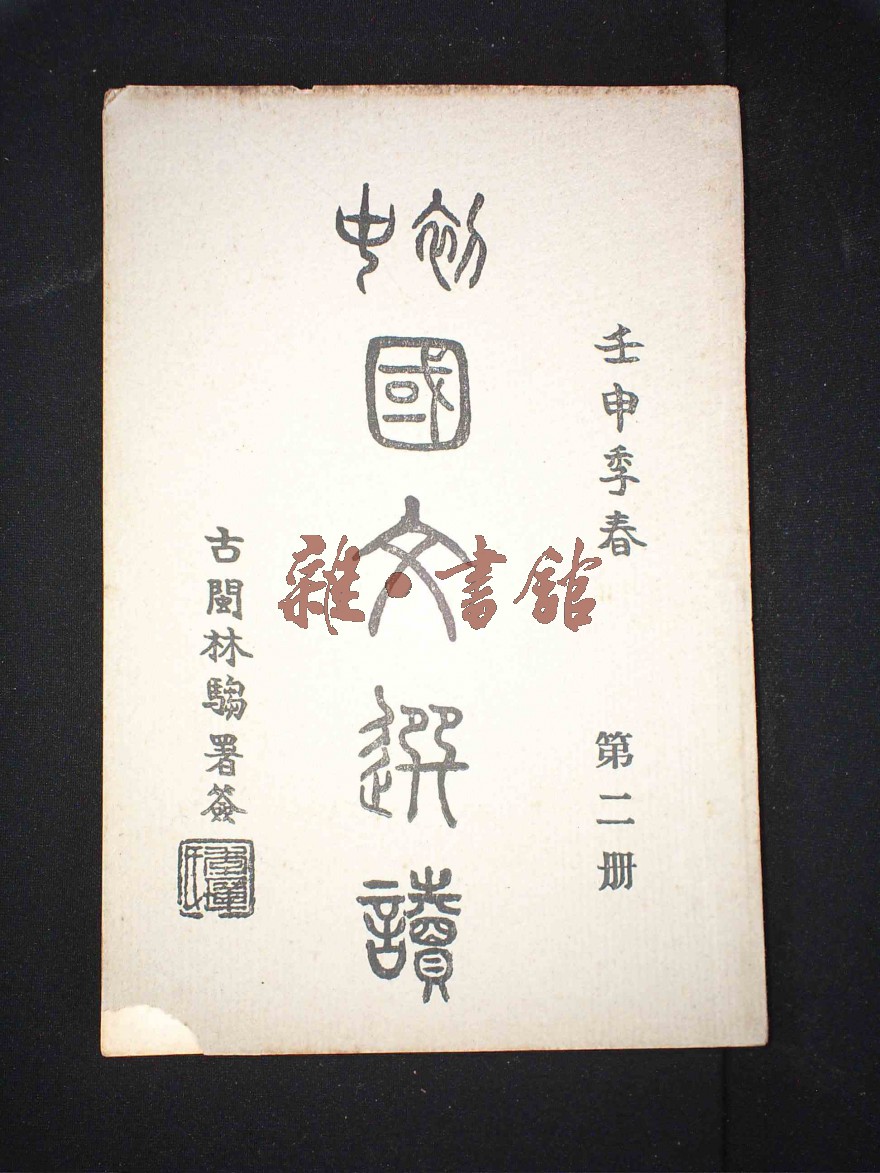 壬申季春
第二册
初中
國文選讀
古閩林騶署簽
雜·書館